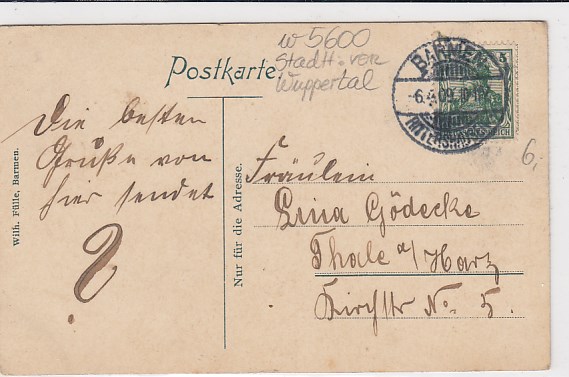 w 5600
Stadtt. von
Wuppertal
Postkarte
BARMEN
-6.4.09.
5
6,
Die besten
Grüße von
hier sendet
?
Wilh. Fülle, Barmen.
Nur für die Adresse.
Fräulein
Lina Gödecke
Thale a/Harz
Kirchstr No. 5.